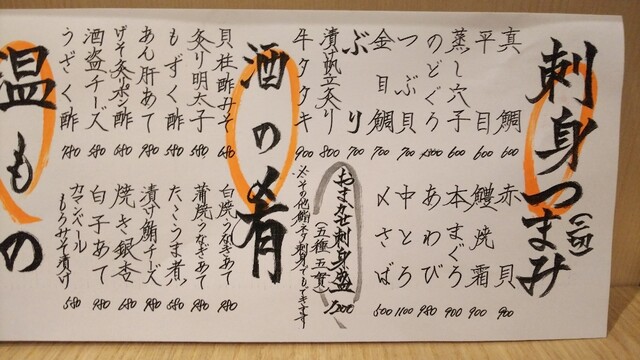 刺身つまみ(二切)
真鯛 600
平目 600
蒸し穴子 600
のどぐろ 1200
つぶ貝 700
金目鯛 700
ぶり 700
漬け帆立炙り 800
牛タタキ 900
赤貝 900
鱧焼霜 900
本まぐろ 900
あわび 980
中とろ 1100
〆さば 500
おまかせ刺身盛
(五種五貫) 1200
※その他鮪ネタ刺身でもできます
酒の肴
貝柱酢みそ 680
炙り明太子 580
もずく酢 580
あん肝あて 980
げそ炙りポン酢 680
酒盗チーズ 580
うざく酢 780
白焼うなぎあて 980
蒲焼うなぎあて 980
たこうま煮 680
漬け鮪チーズ 980
焼き銀杏 680
白子あて 980
カマンベールもろみそ漬け 580
温もの